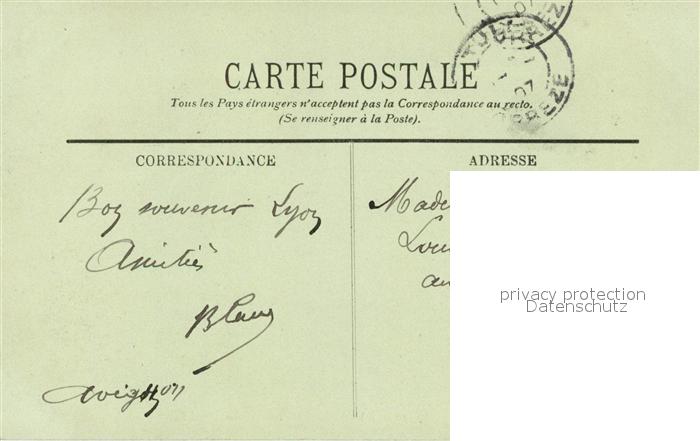 CARTE POSTALE
Tous les Pays étrangers n'acceptent pas la Correspondance au recto.
(Se renseigner à la Poste).
CORRESPONDANCE
ADRESSE
Bon souvenir Lyon
Amitiés
Blanc
Avignon
Made
Lou
au
privacy protection
Datenschutz
TULLE
07
CORREZE